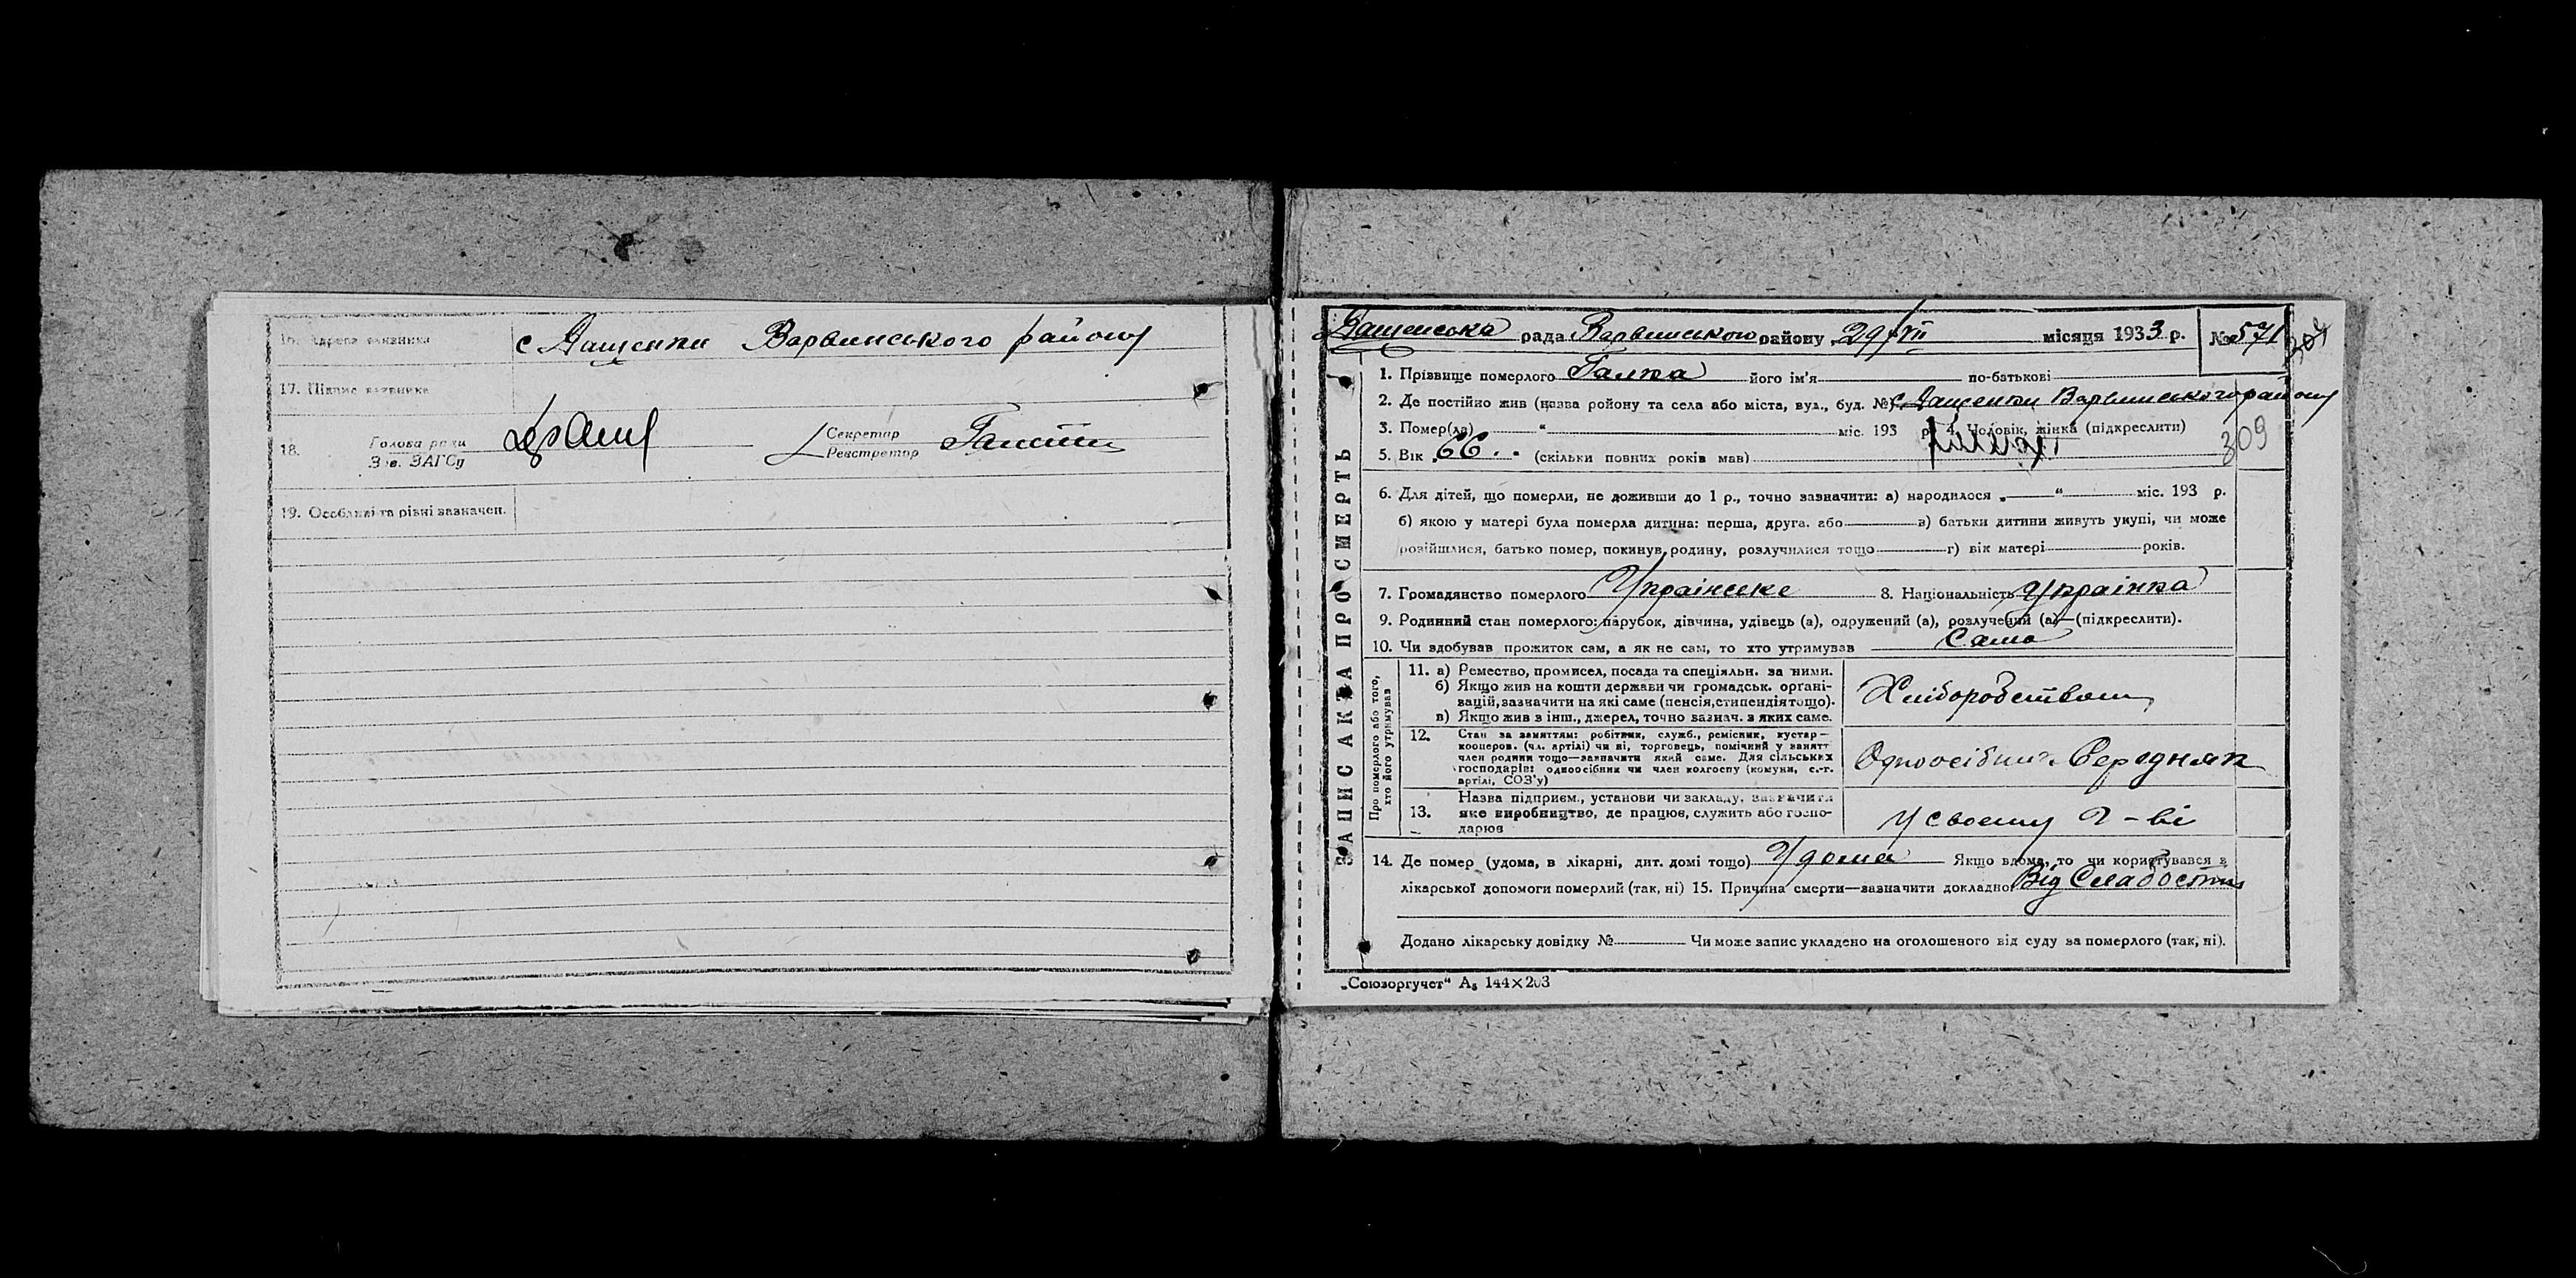 16. Адреса заявника с Дащенки Варвинського району
17. Підпис заявника
18. Голова ради
Зав. ЗАГСу
Секретар
Реєстратор
19. Особливі та різні зазначен.
Дащенська рада Варвинського району 29/VII місяця 1933 р. № 571
309
ЗАПИС АКТА ПРО СМЕРТЬ
1. Прізвище померлого Галка його ім'я по-батькові
2. Де постійно жив (назва району та села або міста, вул., буд. №) с. Дащенки Варвинського району
3. Помер(ла) „ “ міс. 193 р. 4. Чоловік, жінка (підкреслити)
5. Вік 66 (скільки повних років мав)
309
6. Для дітей, що померли, не доживши до 1 р., точно зазначити: а) народилося „ “ міс. 193 р.
б) якою у матері була померла дитина: перша, друга. або в) батьки дитини живуть укупі, чи може
розійшлися, батько помер, покинув родину, розлучилися тощо г) вік матері років.
7. Громадянство померлого Українське 8. Національність Українка
9. Родинний стан померлого: парубок, дівчина, удівець (а), одружений (а), розлучений (а)—(підкреслити).
10. Чи здобував прожиток сам, а як не сам, то хто утримував Сама
Про померлого або того,
хто його утримував
11. а) Ремество, промисел, посада та спеціяльн. за ними.
б) Якщо жив на кошти держави чи громадськ. органі-
зацій, зазначити на які саме (пенсія, стипендія тощо).
в) Якщо жив з інш., джерел, точно зазнач. з яких саме.
Хліборобством
12. Стан за заняттям: робітник, служб., ремісник, кустар—
кооперов. (чл. артілі) чи ні, торговець, помічний у занятт
член родини тощо—зазначити який саме. Для сільських
господарів: одноосібник чи член колгоспу (комуни, с.-г.
артілі, СОЗ'у)
Одноосібник Середняк
13. Назва підприєм., установи чи закладу, зазначити
яке виробництво, де працює, служить або госпо-
дарює
У своєму г-ві
14. Де помер (удома, в лікарні, дит. домі тощо) Удома Якщо вдома, то чи користувався з
лікарської допомоги померлий (так, ні) 15. Причина смерти—зазначити докладно Від Слабости
Додано лікарську довідку № Чи може запис укладено на оголошеного від суду за померлого (так, ні).
„Союзоргучет“ А₅ 144×203